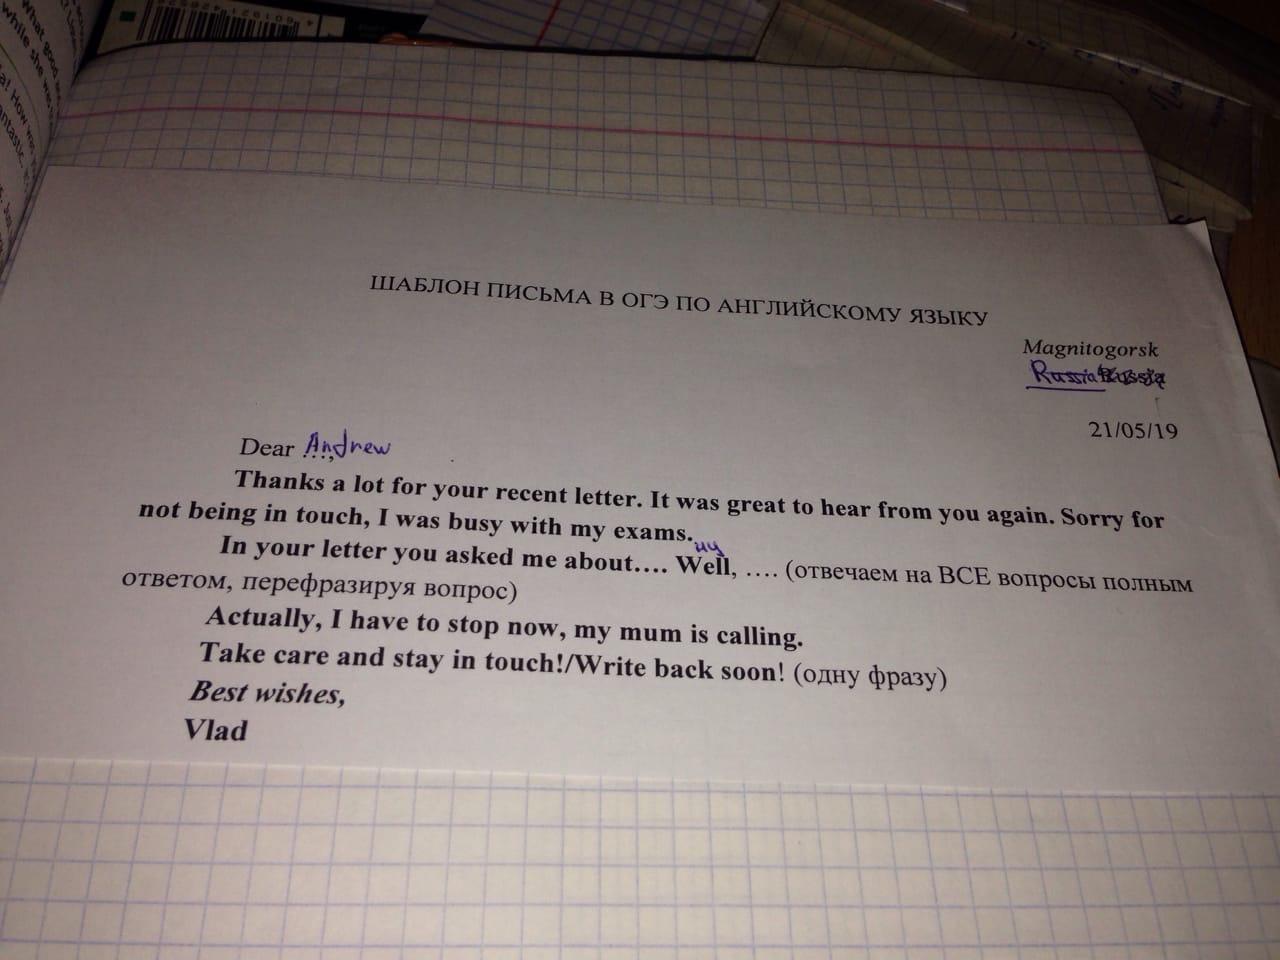 ШАБЛОН ПИСЬМА В ОГЭ ПО АНГЛИЙСКОМУ ЯЗЫКУ
Magnitogorsk
Russia Russia
21/05/19
Dear Andrew
...,
Thanks a lot for your recent letter. It was great to hear from you again. Sorry for
not being in touch, I was busy with my exams.
ну
In your letter you asked me about…. Well, …. (отвечаем на ВСЕ вопросы полным
ответом, перефразируя вопрос)
Actually, I have to stop now, my mum is calling.
Take care and stay in touch!/Write back soon! (одну фразу)
Best wishes,
Vlad
What good
while she was
a! How was
antastic.